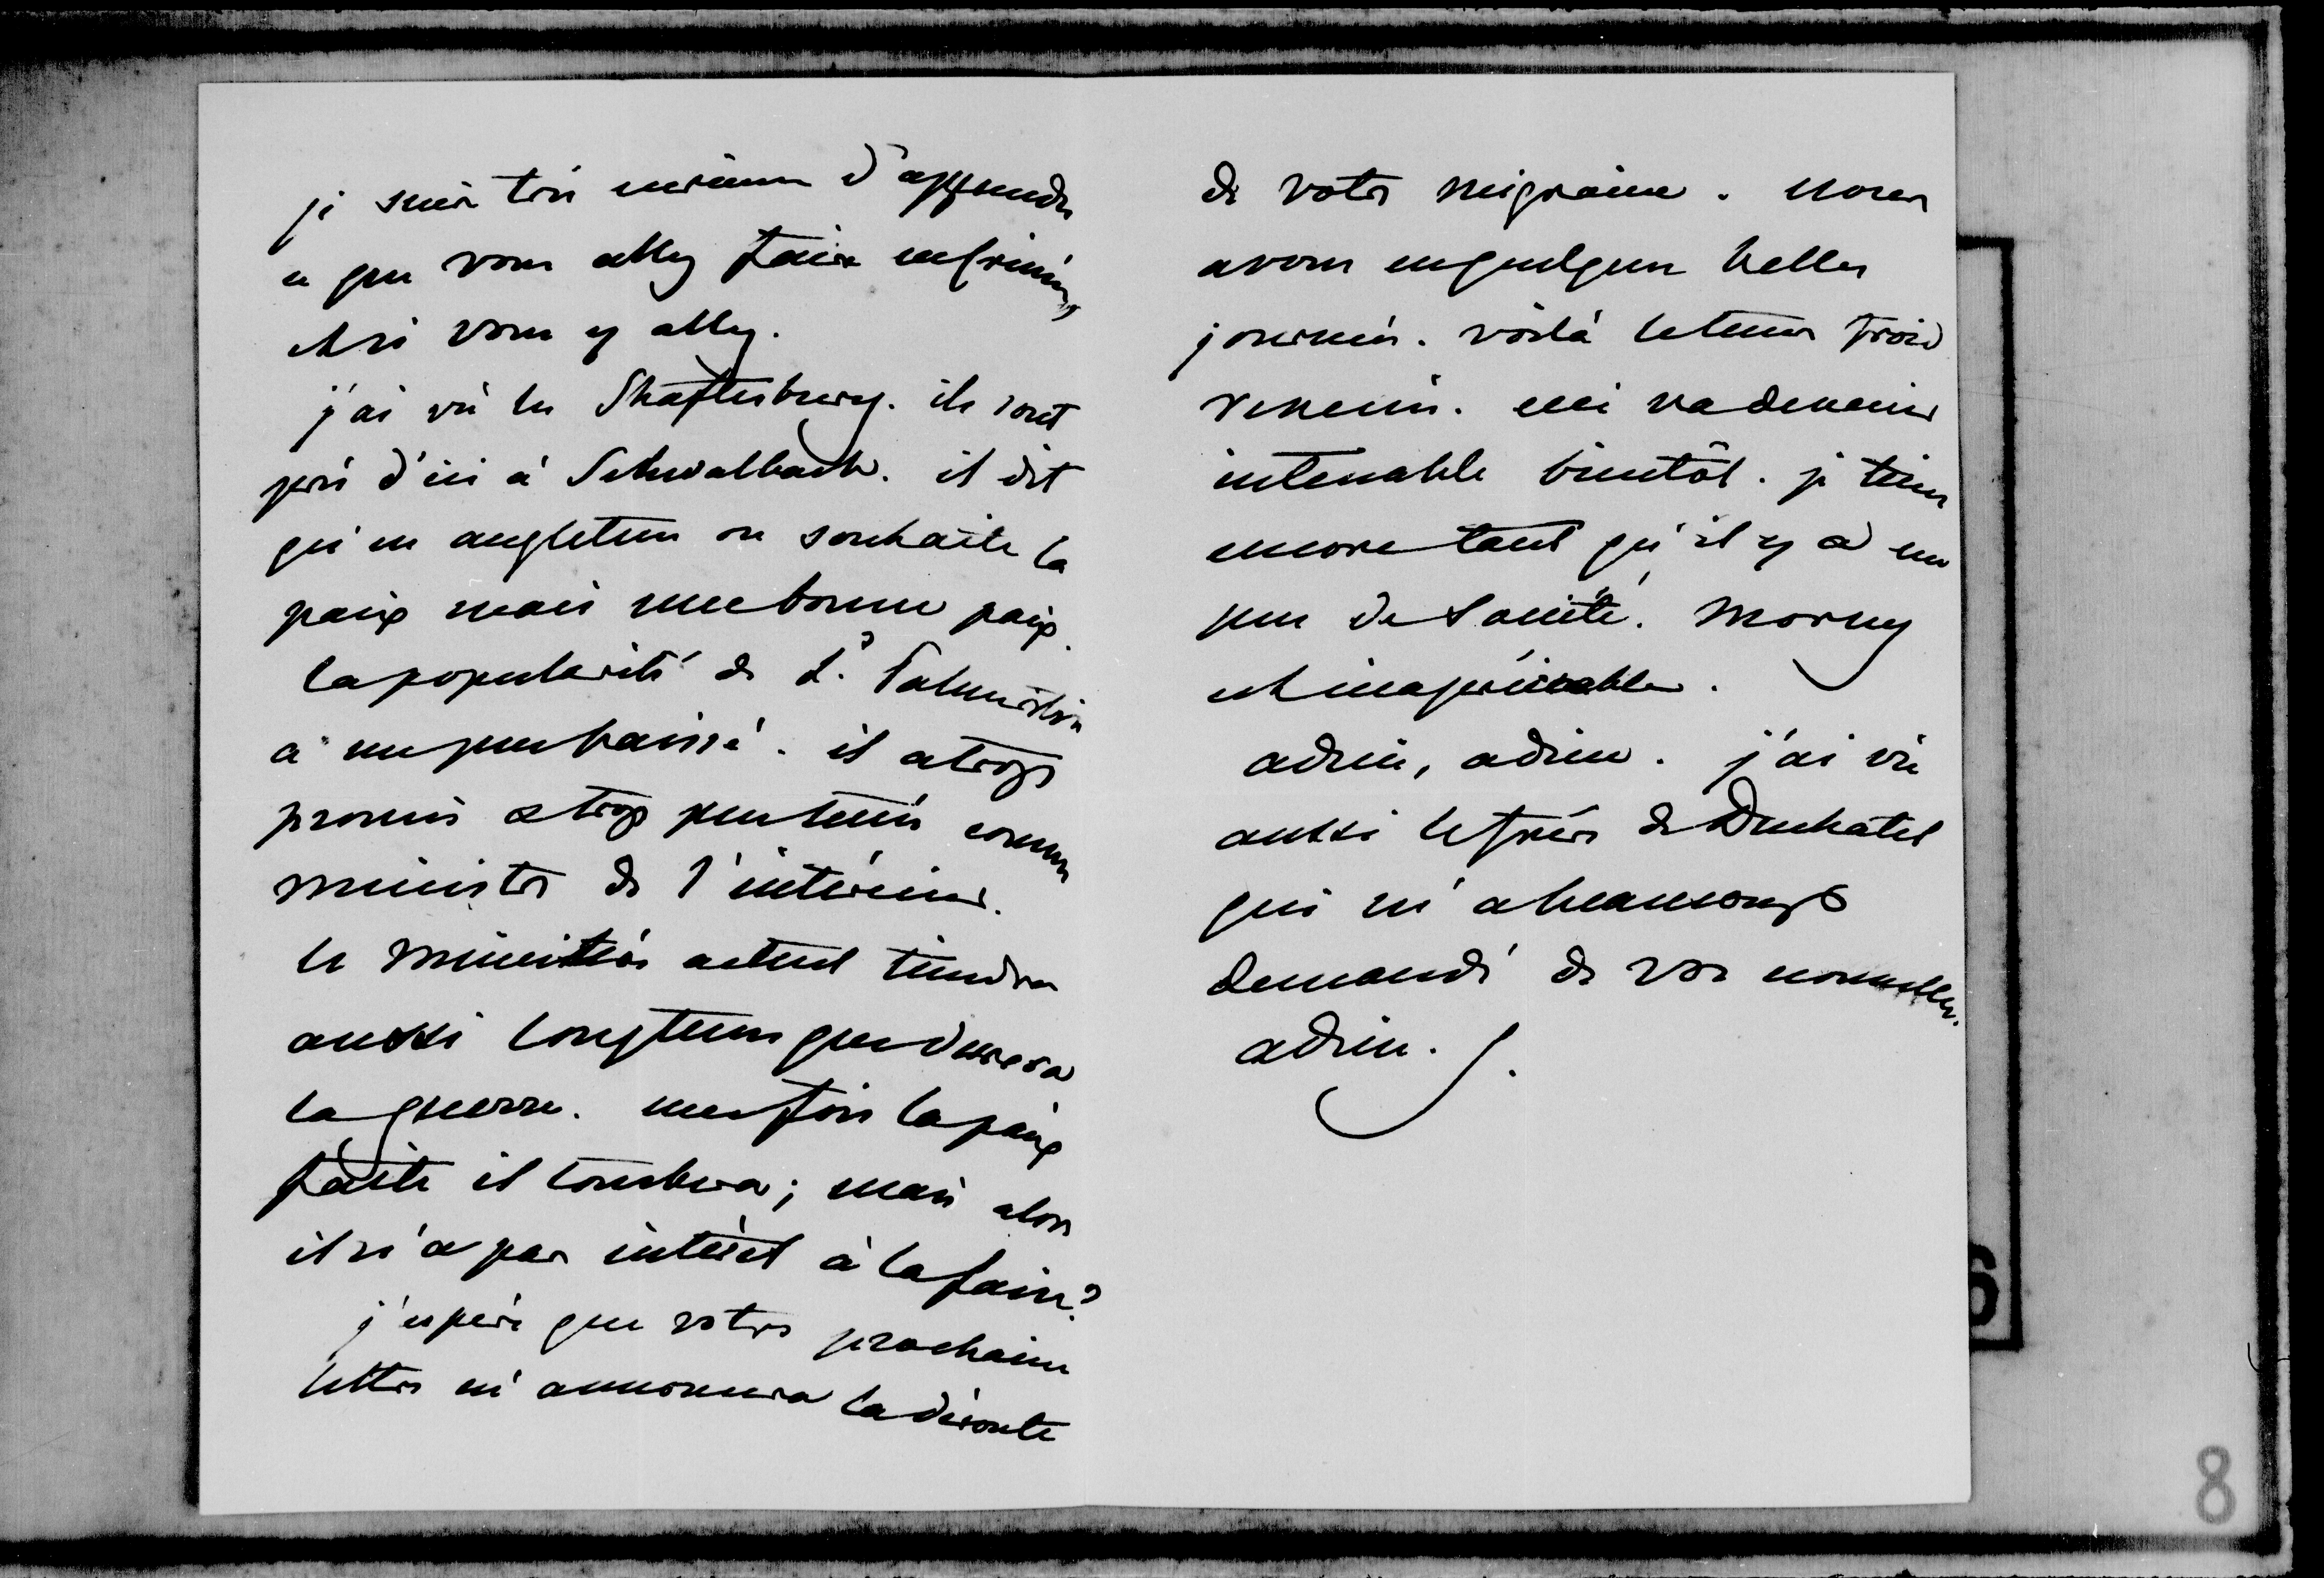 je suis très curieuse d'apprendre
ce que vous allez faire
et si vous y allez.
j'ai vû les Shaftesbury. ils sont
près d'ici à Schwalbach. il dit
qu'en angleterre on souhaite la
paix mais une bonne paix.
la popularité de Ld Palmerston
a un peu baissé. il a trop
promis & trop peu tenu comme
ministre de l'intérieur.
le ministère actuel tiendra
aussi longtems que durera
la guerre. une fois la paix
faite il tombera; mais alors
il n'a pas intérêt à la faire?
j'espère que votre prochaine
lettre m'annoncera la déroute
de votre migraine. nous
avons eu quelques belles
journées. voilà le tems froid
revenu. ceci va devenir
intenable bientôt. je tiens
encore tant qu'il y a un
peu de société. Morny
est inappréciable.
adieu, adieu. j'ai vû
aussi le frère de Duchatel
qui m'a beaucoup
demandé de vos nouvelles.
adieu.
8
6